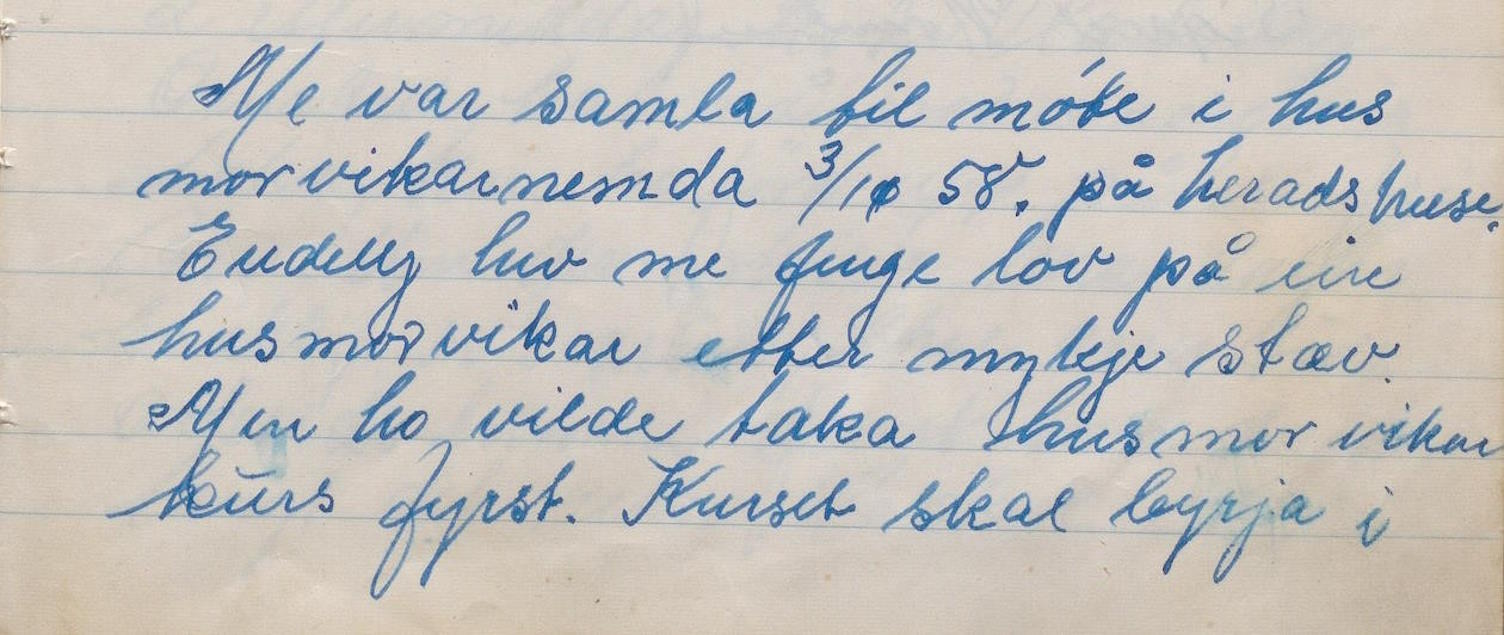 Me var samla til móte i hus
morvikarnemda 3/10 58. på heradshuse.
Endeleg hev me fenge lov på ein
husmorvikar etter mykje stæv.
Men ho vilde taka husmorvikar
kurs fyrst. Kurset skal byrja i